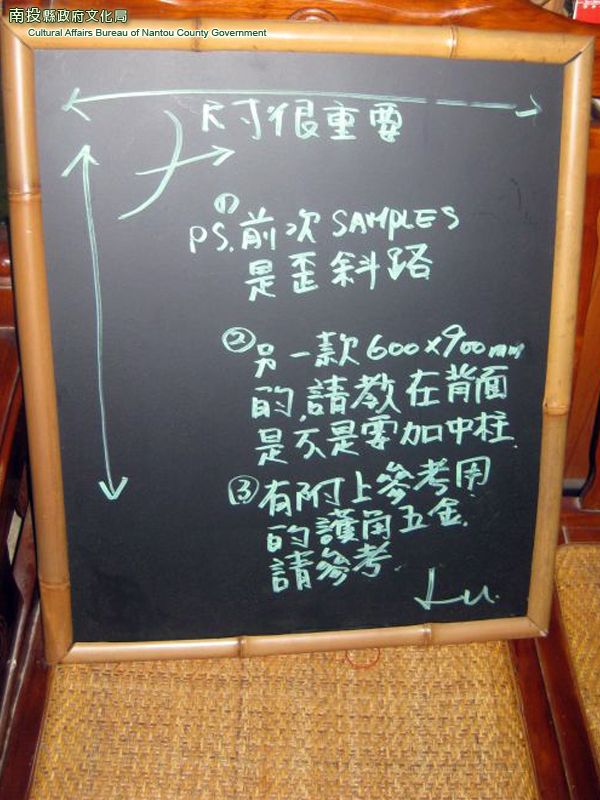 南投縣政府文化局
Cultural Affairs Bureau of Nantou County Government
尺寸很重要
PS. ① 前次 SAMPLES
是歪斜路
② 另一款 600×900mm
的,請教在背面
是不是要加中柱.
③ 有附上參考用
的護角五金.
請參考.
Lu.